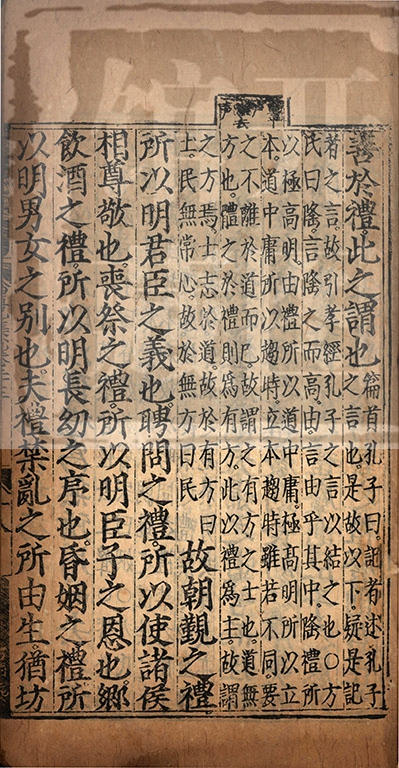 善於禮。此之謂也
篇首孔子曰。記者述孔子
之言也。是故以下。疑是記
者之言。故引孝經孔子之言以結之也○方
氏曰。隆。言隆之而高。由。言由乎其中。隆禮所
以極高明。由禮所以道中庸。極高明所以立
本。道中庸所以趨時。立本趨時雖若不同。要
之不離於道而已。故謂之有方之士也。道無
方也。體之於禮則為有方。此以禮為主。故謂
之方焉。士志於道。故於有方曰
士。民無常心。故於無方曰民
故朝覲之禮。
所以明君臣之義也。聘問之禮。所以使諸侯
相尊敬也。喪祭之禮。所以明臣子之恩也。鄉
飲酒之禮。所以明長幼之序也。昏姻之禮。所
以明男女之別也。夫禮禁亂之所由生。猶坊